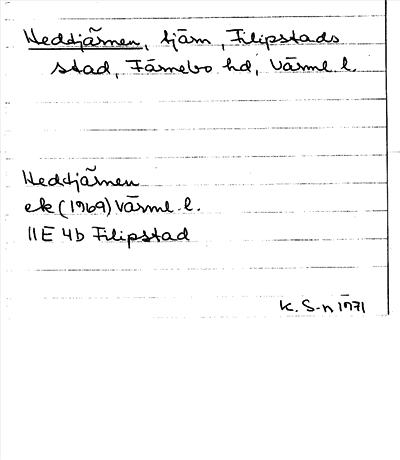 Neddtjärnen, tjärn, Filipstads
stad, Färnebo hd, Värml. l.
Neddtjärnen
ek (1969) Värml. l.
11E 4b Filipstad
K. S-n 1971